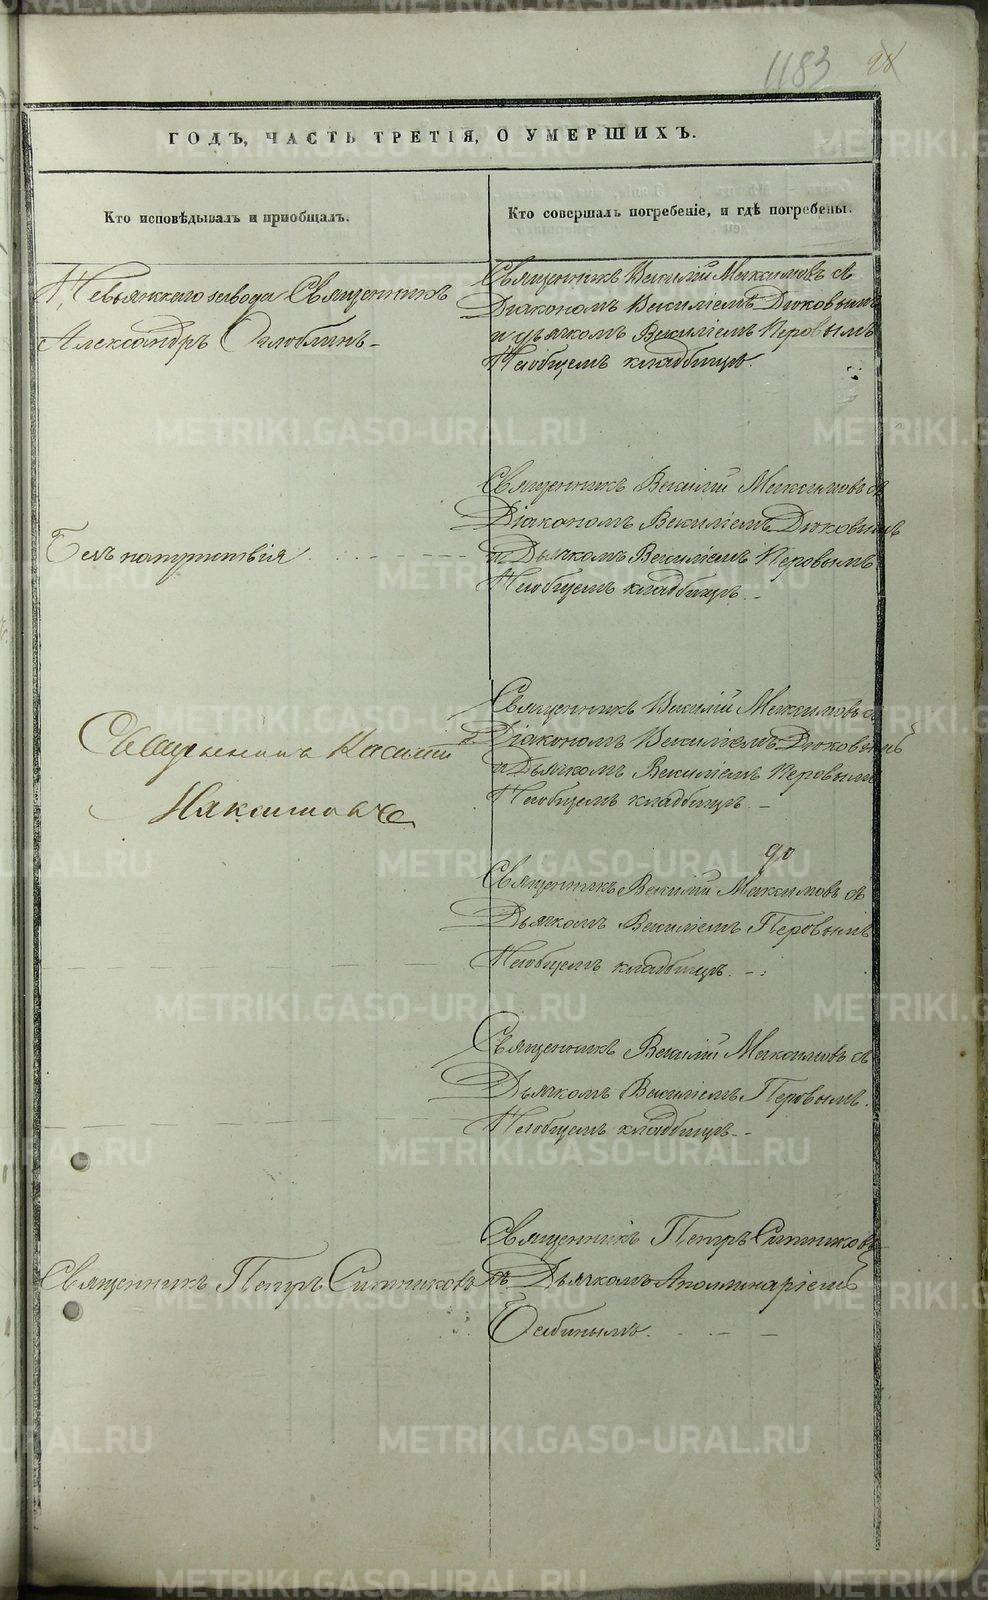 1183 98
ГОДЪ, ЧАСТЬ ТРЕТІЯ, О УМЕРШИХЪ.
Кто исповѣдывалъ и пріобщалъ.
Кто совершалъ погребеніе, и гдѣ погребены.
Невьянскаго завода Священникъ
Александръ Оглоблинъ
Священникъ Василій Максимовъ съ
Діакономъ Василіемъ Дюковымъ
и дьячкомъ Василіемъ Перовымъ
На общемъ кладбищѣ.
Безъ напутствія
Священникъ Василій Максимовъ съ
Діакономъ Василіемъ Дюковымъ
и Дьячкомъ Василіемъ Перовымъ
На общемъ кладбищѣ.
Священникъ Василій
Максимовъ
Священникъ Василій Максимовъ съ
Діакономъ Василіемъ Дюковымъ
и Дьячкомъ Василіемъ Перовымъ
На общемъ кладбищѣ
Священникъ Василій Максимовъ съ
Дьячкомъ Василіемъ Перовымъ
На общемъ кладбищѣ.
Священникъ Василій Максимовъ съ
Дьячкомъ Василіемъ Перовымъ.
На общемъ кладбищѣ.
Священникъ Петръ Ситниковъ
Священникъ Петръ Ситниковъ
съ Дьячкомъ Аполлинаріемъ
Бабинымъ.
METRIKI.GASO-URAL.RU